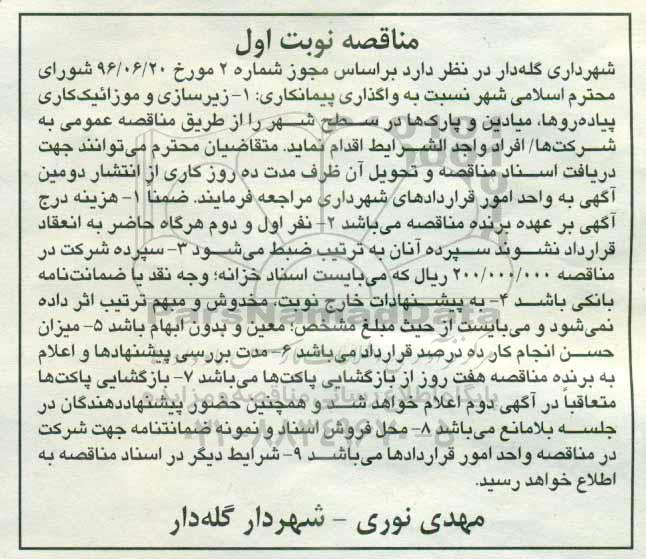 مناقصه نوبت اول
شهرداری گله‌دار در نظر دارد براساس مجوز شماره ۲ مورخ ۹۶/۰۶/۲۰ شورای
محترم اسلامی شهر نسبت به واگذاری پیمانکاری: ۱- زیرسازی و موزائیک‌کاری
پیاده‌روها، میادین و پارک‌ها در سطح شهر را از طریق مناقصه عمومی به
شرکت‌ها/ افراد واجد الشرایط اقدام نماید. متقاضیان محترم می‌توانند جهت
دریافت اسناد مناقصه و تحویل آن ظرف مدت ده روز کاری از انتشار دومین
آگهی به واحد امور قراردادهای شهرداری مراجعه فرمایند. ضمناً ۱- هزینه درج
آگهی بر عهده برنده مناقصه می‌باشد ۲- نفر اول و دوم هرگاه حاضر به انعقاد
قرارداد نشوند سپرده آنان به ترتیب ضبط می‌شود ۳- سپرده شرکت در
مناقصه ۲۰۰/۰۰۰/۰۰۰ ریال که می‌بایست اسناد خزانه؛ وجه نقد یا ضمانت‌نامه
بانکی باشد ۴- به پیشنهادات خارج نوبت، مخدوش و مبهم ترتیب اثر داده
نمی‌شود و می‌بایست از حیث مبلغ مشخص؛ معین و بدون ابهام باشد ۵- میزان
حسن انجام کار ده درصد قرارداد می‌باشد ۶- مدت بررسی پیشنهادها و اعلام
به برنده مناقصه هفت روز از بازگشایی پاکت‌ها می‌باشد ۷- بازگشایی پاکت‌ها
متعاقباً در آگهی دوم اعلام خواهد شد و همچنین حضور پیشنهاددهندگان در
جلسه بلامانع می‌باشد ۸- محل فروش اسناد و نمونه ضمانتنامه جهت شرکت
در مناقصه واحد امور قراردادها می‌باشد ۹- شرایط دیگر در اسناد مناقصه به
اطلاع خواهد رسید.
مهدی نوری - شهردار گله‌دار
ParsNamadData